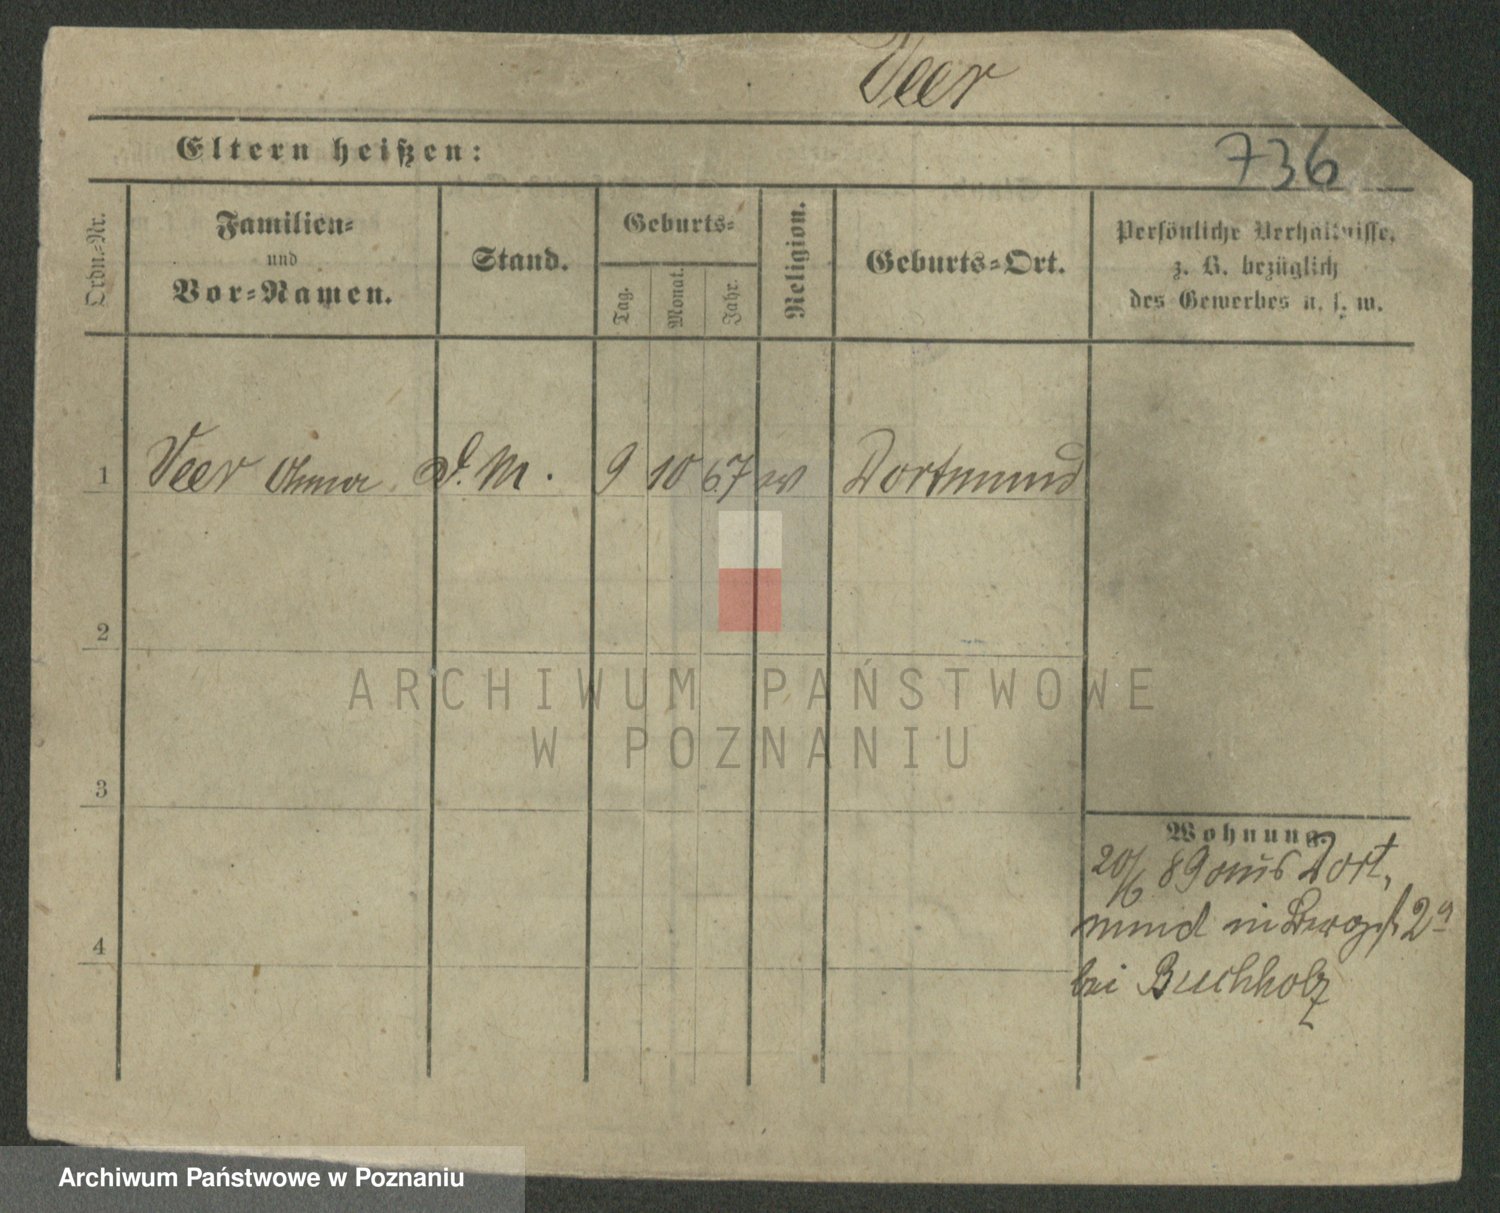 Veer
736
Eltern heißen:
Ordn.-Nr.
Familien-
und
Vor-Namen.
Stand.
Geburts-
Tag.
Monat.
Jahr.
Religion.
Geburts-Ort.
Persönliche Verhältnisse,
z. B. bezüglich
des Gewerbes u. s. w.
1 Veer D. M. 9 10 67 ev Dortmund
2
3
4
Wohnung.
20/6 89 aus Dort,
mund in Bergst 2a
bei Buchholz
ARCHIWUM PAŃSTWOWE
W POZNANIU
Archiwum Państwowe w Poznaniu